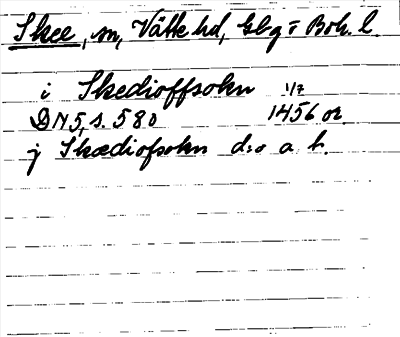 Skee, sn, Vätte hd, Gbg o Boh. l.
i Skedioffsokn 1/7
DN 5, s. 580 1456 or.
j Skædiofsokn d:o a. h.